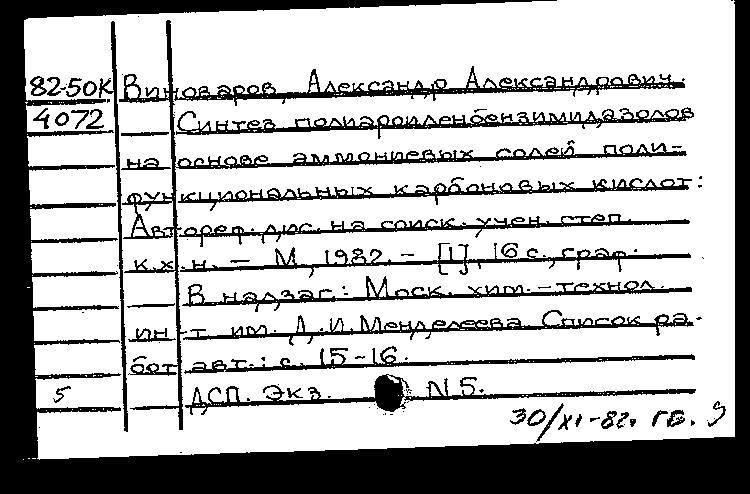 82-50К Виноваров, Александр Александрович.
4072 Синтез полиароиленбензимидазолов
на основе аммониевых солей поли-
функциональных карбоновых кислот:
Автореф. дис. на соиск. учен. степ.
к.х.н. – М., 1982. – [1], 16 с., граф.
В надзаг.: Моск. хим.-технол.
ин-т им. Д.И. Менделеева. Список ра-
бот авт.: с. 15-16.
5 ДСП. Экз. N 5.
30/XI-82. ГБ.